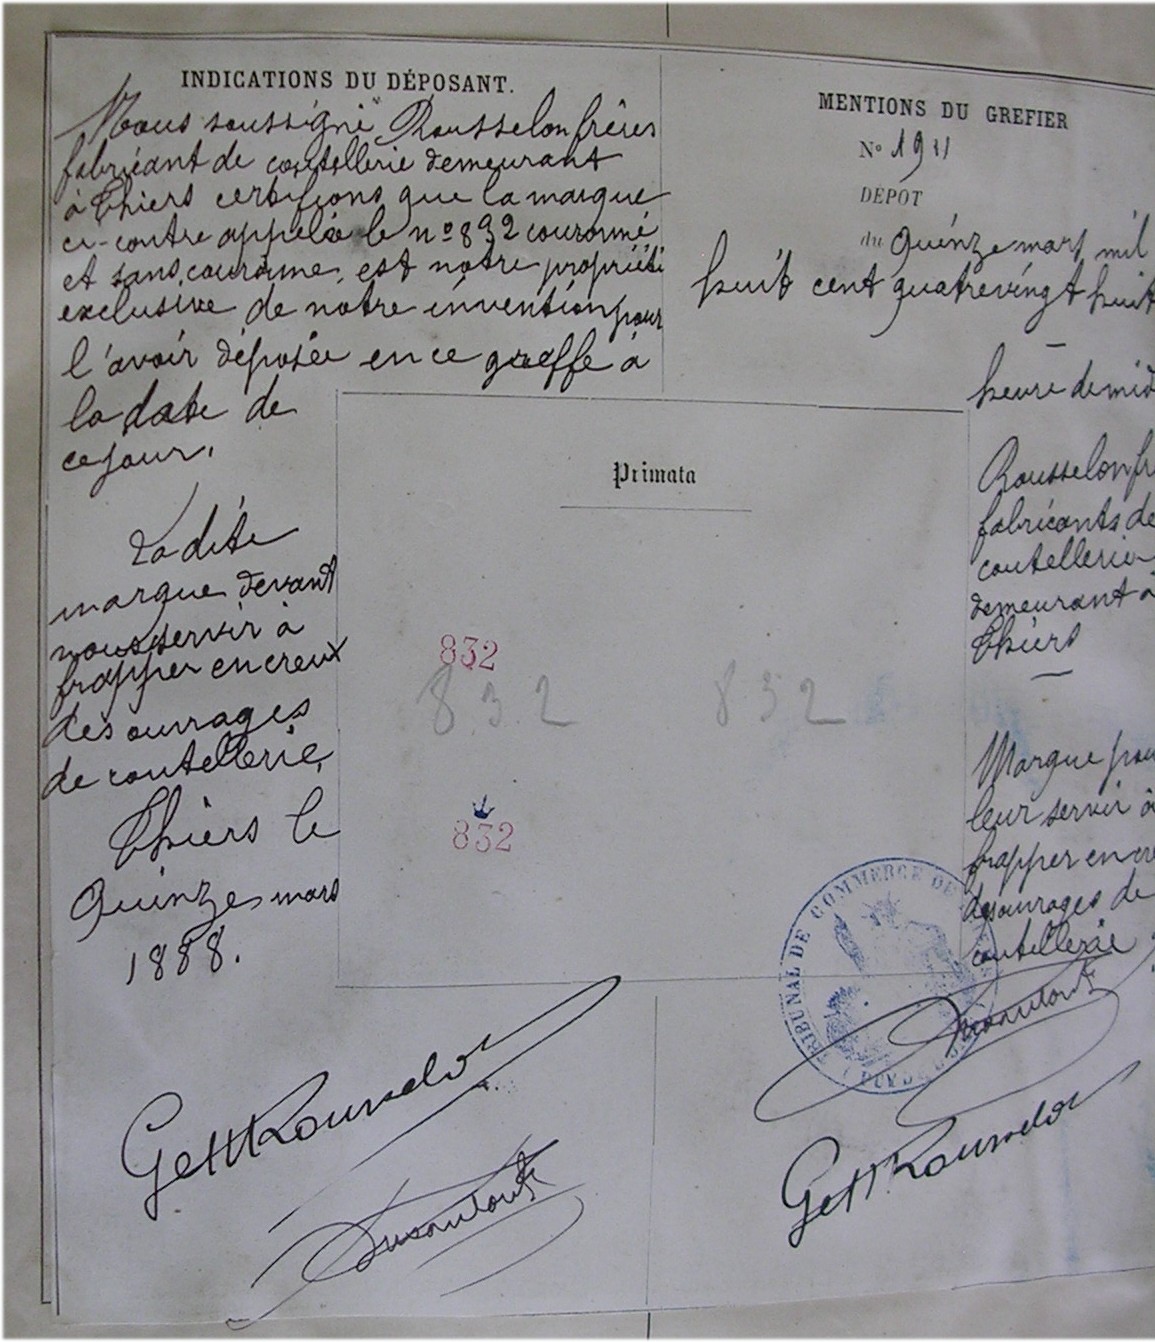 INDICATIONS DU DÉPOSANT.
Nous soussigné Rousselon frères
fabricant de coutellerie demeurant
à Thiers certifions que la marque
ci-contre appelée le nº 832 couronné
et sans couronne, est notre propriété
exclusive de notre invention pour
l'avoir déposée en ce greffe à
la date de
ce jour.
La dite
marque devant
nous servir à
frapper en creux
des ouvrages
de coutellerie,
Thiers le
Quinze mars
1888.
Primata
832
8 3 2 8 3 2
832
MENTIONS DU GREFIER
Nº
DÉPOT
du Quinze mars mil
huit cent quatrevingt huit
heure de
Rousselon
fabricants de
coutellerie
demeurant à
Thiers
Marque
leur servir à
frapper en
des ouvrages de
coutellerie
TRIBUNAL DE COMMERCE DE
G et H Rousselon
G et H Rousselon